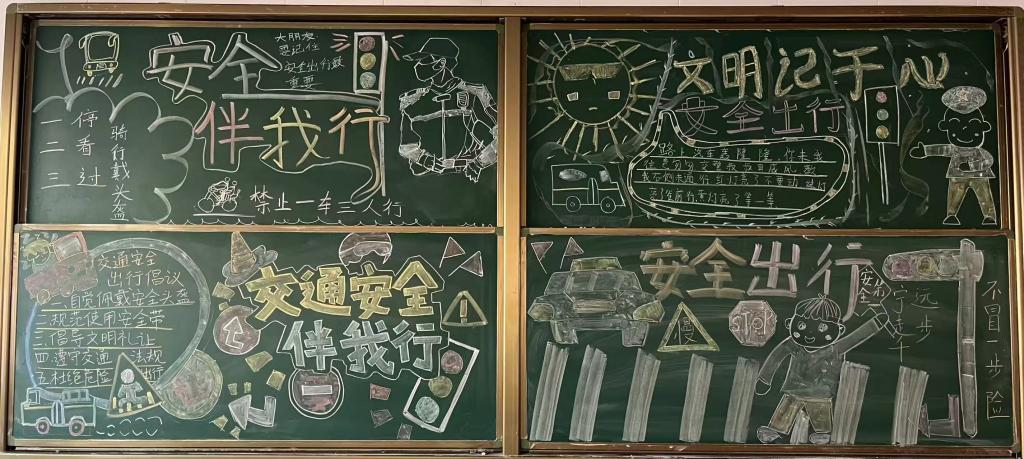 大朋友
要记住
安全出行最
重要
安全
伴我行
一停
二看
三过
骑行戴头盔
禁止一车三人行
文明记于心
安全出行
交通安全
出行倡议
一.自觉佩戴安全头盔
二.规范使用安全带
三.倡导文明礼让
四.遵守交通法规
五.杜绝危险出行
交通安全
伴我行
安全出行
慢
STOP
安全
宁走千步远
不冒一步险